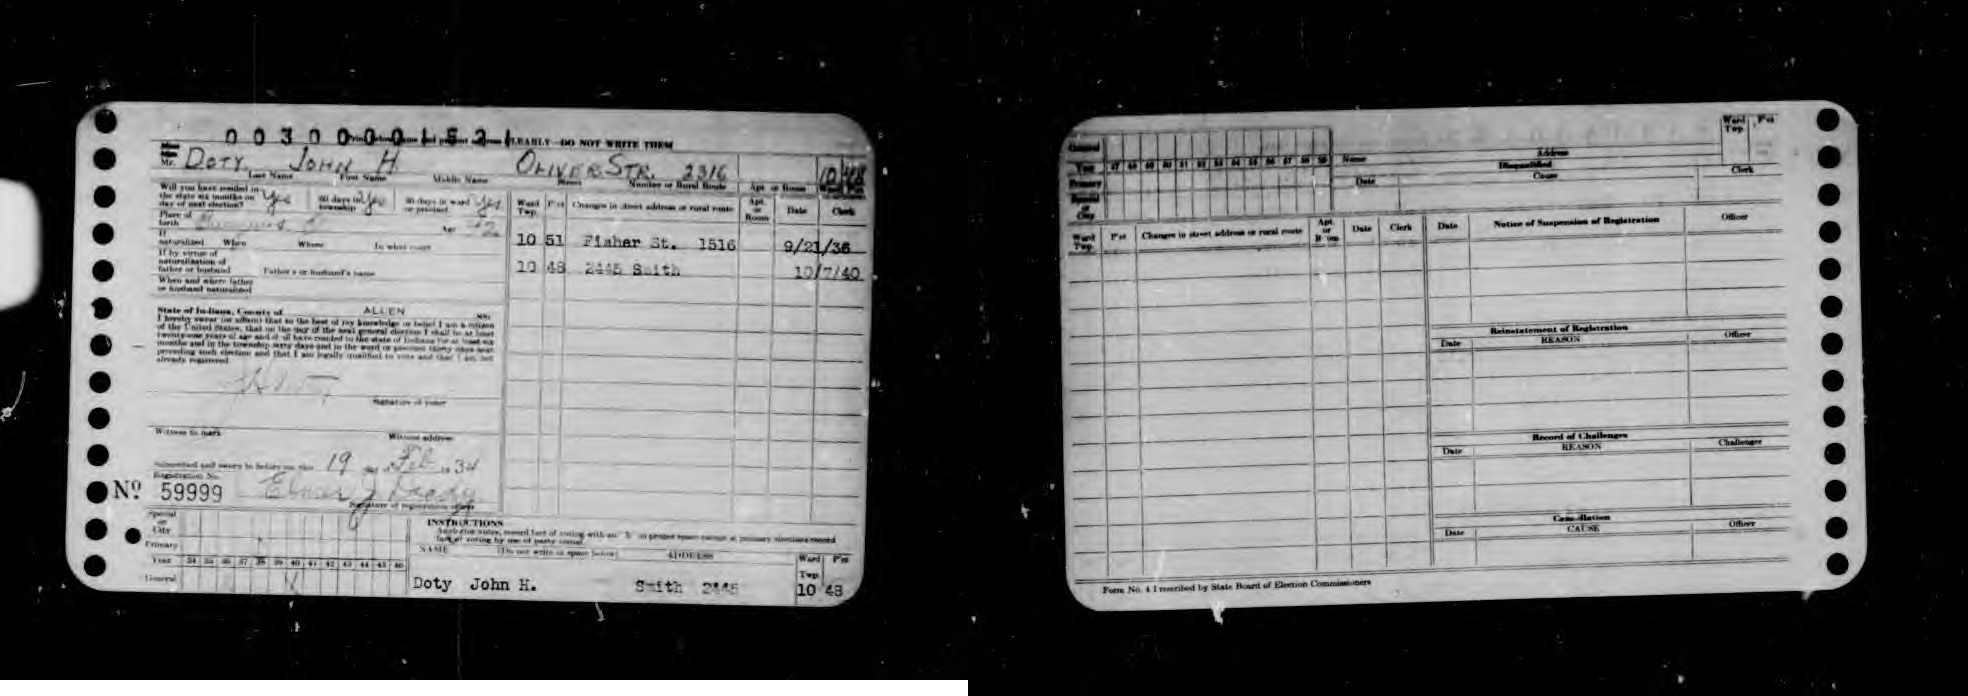 0030000015 21
CLEARLY—DO NOT WRITE THEM
Mr. DOTY JOHN H. OLIVER STR. 2316 10/48
Last Name First Name Middle Name Street Number or Rural Route Apt. or Room Ward Pct
Will you have resided in the state six months on day of next election? Yes 60 days in township Yes 30 days in ward or precinct Yes
Place of birth Age
If naturalized When Where In what court
If by virtue of naturalization of father or husband Father's or husband's name
When and where father or husband naturalized
Ward Twp. Pct Changes in street address or rural route Apt. or Room Date Clerk
10 51 Fisher St. 1516 9/21/36
10 48 2445 Smith 10/7/40
State of Indiana, County of ALLEN ss:
I hereby swear (or affirm) that to the best of my knowledge or belief I am a citizen
of the United States, that on the day of the next general election I shall be at least
twenty-one years of age and shall have resided in the state of Indiana for at least six
months and in the township sixty days and in the ward or precinct thirty days next
preceding such election and that I am legally qualified to vote and that I am not
already registered.
Signature of voter
Witness to mark Witness address
Subscribed and sworn to before me this 19 day of Feb 1934
Registration No.
No 59999 Elmer J.
Signature of registration officer
Special or City
Primary
Year 34 35 36 37 38 39 40 41 42 43 44 45 46
General X
INSTRUCTIONS
NAME (Do not write in space below) ADDRESS Ward Twp. Pct
Doty John H. Smith 2445 10 48
General
Year 47 48 49 50 51 52 53 54 55 56 57 58 59
Primary
Special or City
Name Address Ward Twp. Pct
Disqualified
Date Cause Clerk
Ward Twp. Pct Changes in street address or rural route Apt. or Room Date Clerk
Date Notice of Suspension of Registration Officer
Reinstatement of Registration
Date REASON Officer
Record of Challenges
Date REASON Challenger
Cancellation
Date CAUSE Officer
Form No. 4 Prescribed by State Board of Election Commissioners